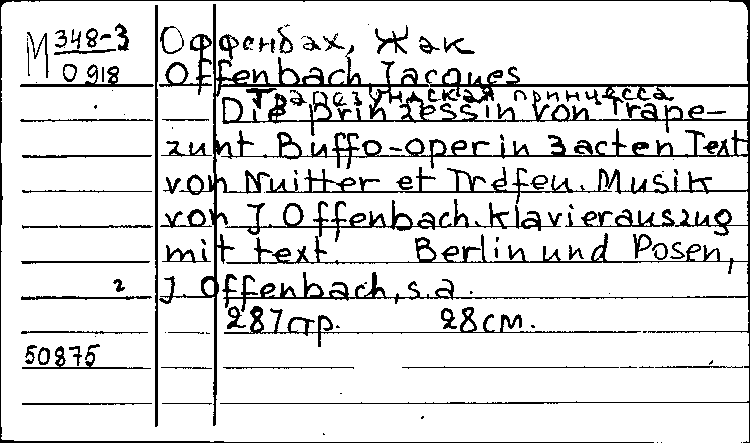 М 348-3 Оффенбах, Жак
О 918 Offenbach, Jacques
Трапезундская принцесса
Die Prinzessin von Trape-
zunt. Buffo-oper in 3 acten Text
von Nuitter et Trefeu. Musik
von J. Offenbach. Klavierauszug
mit text. Berlin und Posen,
2 J. Offenbach, s.a.
287 стр. 28 см.
50875